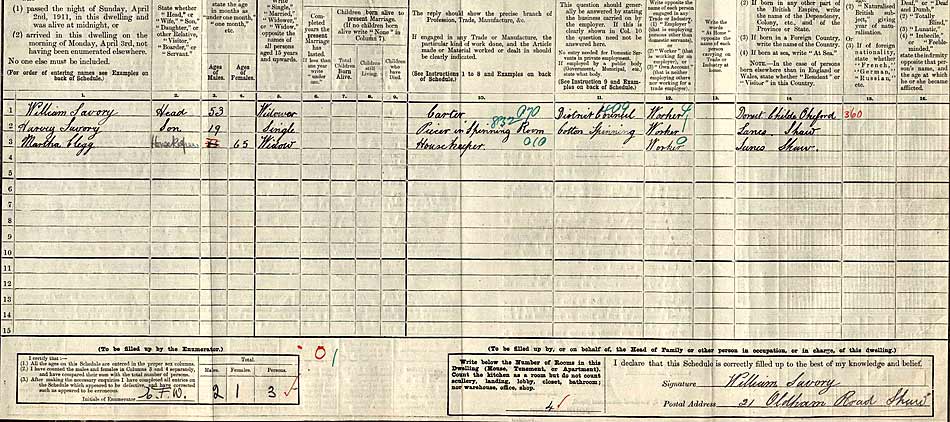 (1) passed the night of Sunday, April 2nd, 1911, in this dwelling and was alive at midnight, or
(2) arrived in this dwelling on the morning of Monday, April 3rd, not having been enumerated elsewhere.
No one else must be included.
(For order of entering names see Examples on back of Schedule.)
State whether "Head," or "Wife," "Son," "Daughter," or other Relative, "Visitor," "Boarder," or "Servant."
state the age in months as "under one month," "one month," etc.
Ages of Males.
Ages of Females.
Write "Single," "Married," "Widower," or "Widow," opposite the names of all persons aged 15 years and upwards.
Completed years the present Marriage has lasted. If less than one year write "under one."
Children born alive to present Marriage. (If no children born alive write "None" in Column 7).
Total Children Born Alive.
Children still Living.
Children who have Died.
The reply should show the precise branch of Profession, Trade, Manufacture, &c.
If engaged in any Trade or Manufacture, the particular kind of work done, and the Article made or Material worked or dealt in should be clearly indicated.
(See Instructions 1 to 8 and Examples on back of Schedule.)
This question should generally be answered by stating the business carried on by the employer. If this is clearly shown in Col. 10 the question need not be answered here.
No entry needed for Domestic Servants in private employment.
If employed by a public body (Government, Municipal, etc.) state what body.
(See Instruction 9 and Examples on back of Schedule.)
Write opposite the name of each person engaged in any Trade or Industry,
(1) "Employer" (that is employing persons other than domestic servants), or
(2) "Worker" (that is working for an employer), or
(3) "Own Account" (that is neither employing others nor working for a trade employer).
Write the words "At Home" opposite the name of each person carrying on Trade or Industry at home.
(2) If born in any other part of the British Empire, write the name of the Dependency, Colony, etc., and of the Province or State.
(3) If born in a Foreign Country, write the name of the Country.
(4) If born at sea, write "At Sea."
NOTE.—In the case of persons born elsewhere than in England or Wales, state whether "Resident" or "Visitor" in this Country.
(2) "Naturalised British subject," giving year of naturalisation.
Or
(3) If of foreign nationality, state whether "French," "German," "Russian," etc.
"Deaf," or "Deaf and Dumb,"
(2) "Totally Blind,"
(3) "Lunatic,"
(4) "Imbecile," or "Feeble-minded,"
state the infirmity opposite that person's name, and the age at which he or she became afflicted.
1. 2. 3. 4. 5. 6. 7. 8. 9. 10. 11. 12. 13. 14. 15. 16.
1 William Savory Head 53 Widower Carter District Council Worker Dorset Childe Okeford 360
2 Harvey Savory Son 19 Single Piecer in Spinning Room 832 Cotton Spinning Worker Lancs Shaw
3 Martha Clegg Housekeeper 65 Widow Housekeeper Worker Lancs Shaw.
4
5
6
7
8
9
10
11
12
13
14
15
(To be filled up by the Enumerator.)
I certify that:—
(1.) All the ages on this Schedule are entered in the proper sex columns.
(2.) I have counted the males and females in Columns 3 and 4 separately, and have compared their sum with the total number of persons.
(3.) After making the necessary enquiries I have completed all entries on the Schedule which appeared to be defective, and have corrected such as appeared to be erroneous.
Initials of Enumerator
Total.
Males. Females. Persons.
2 1 3
(To be filled up by, or on behalf of, the Head of Family or other person in occupation, or in charge, of this dwelling.)
Write below the Number of Rooms in this Dwelling (House, Tenement, or Apartment). Count the kitchen as a room but do not count scullery, landing, lobby, closet, bathroom; nor warehouse, office, shop.
4
I declare that this Schedule is correctly filled up to the best of my knowledge and belief.
Signature William Savory
Postal Address 21 Oldham Road Shaw